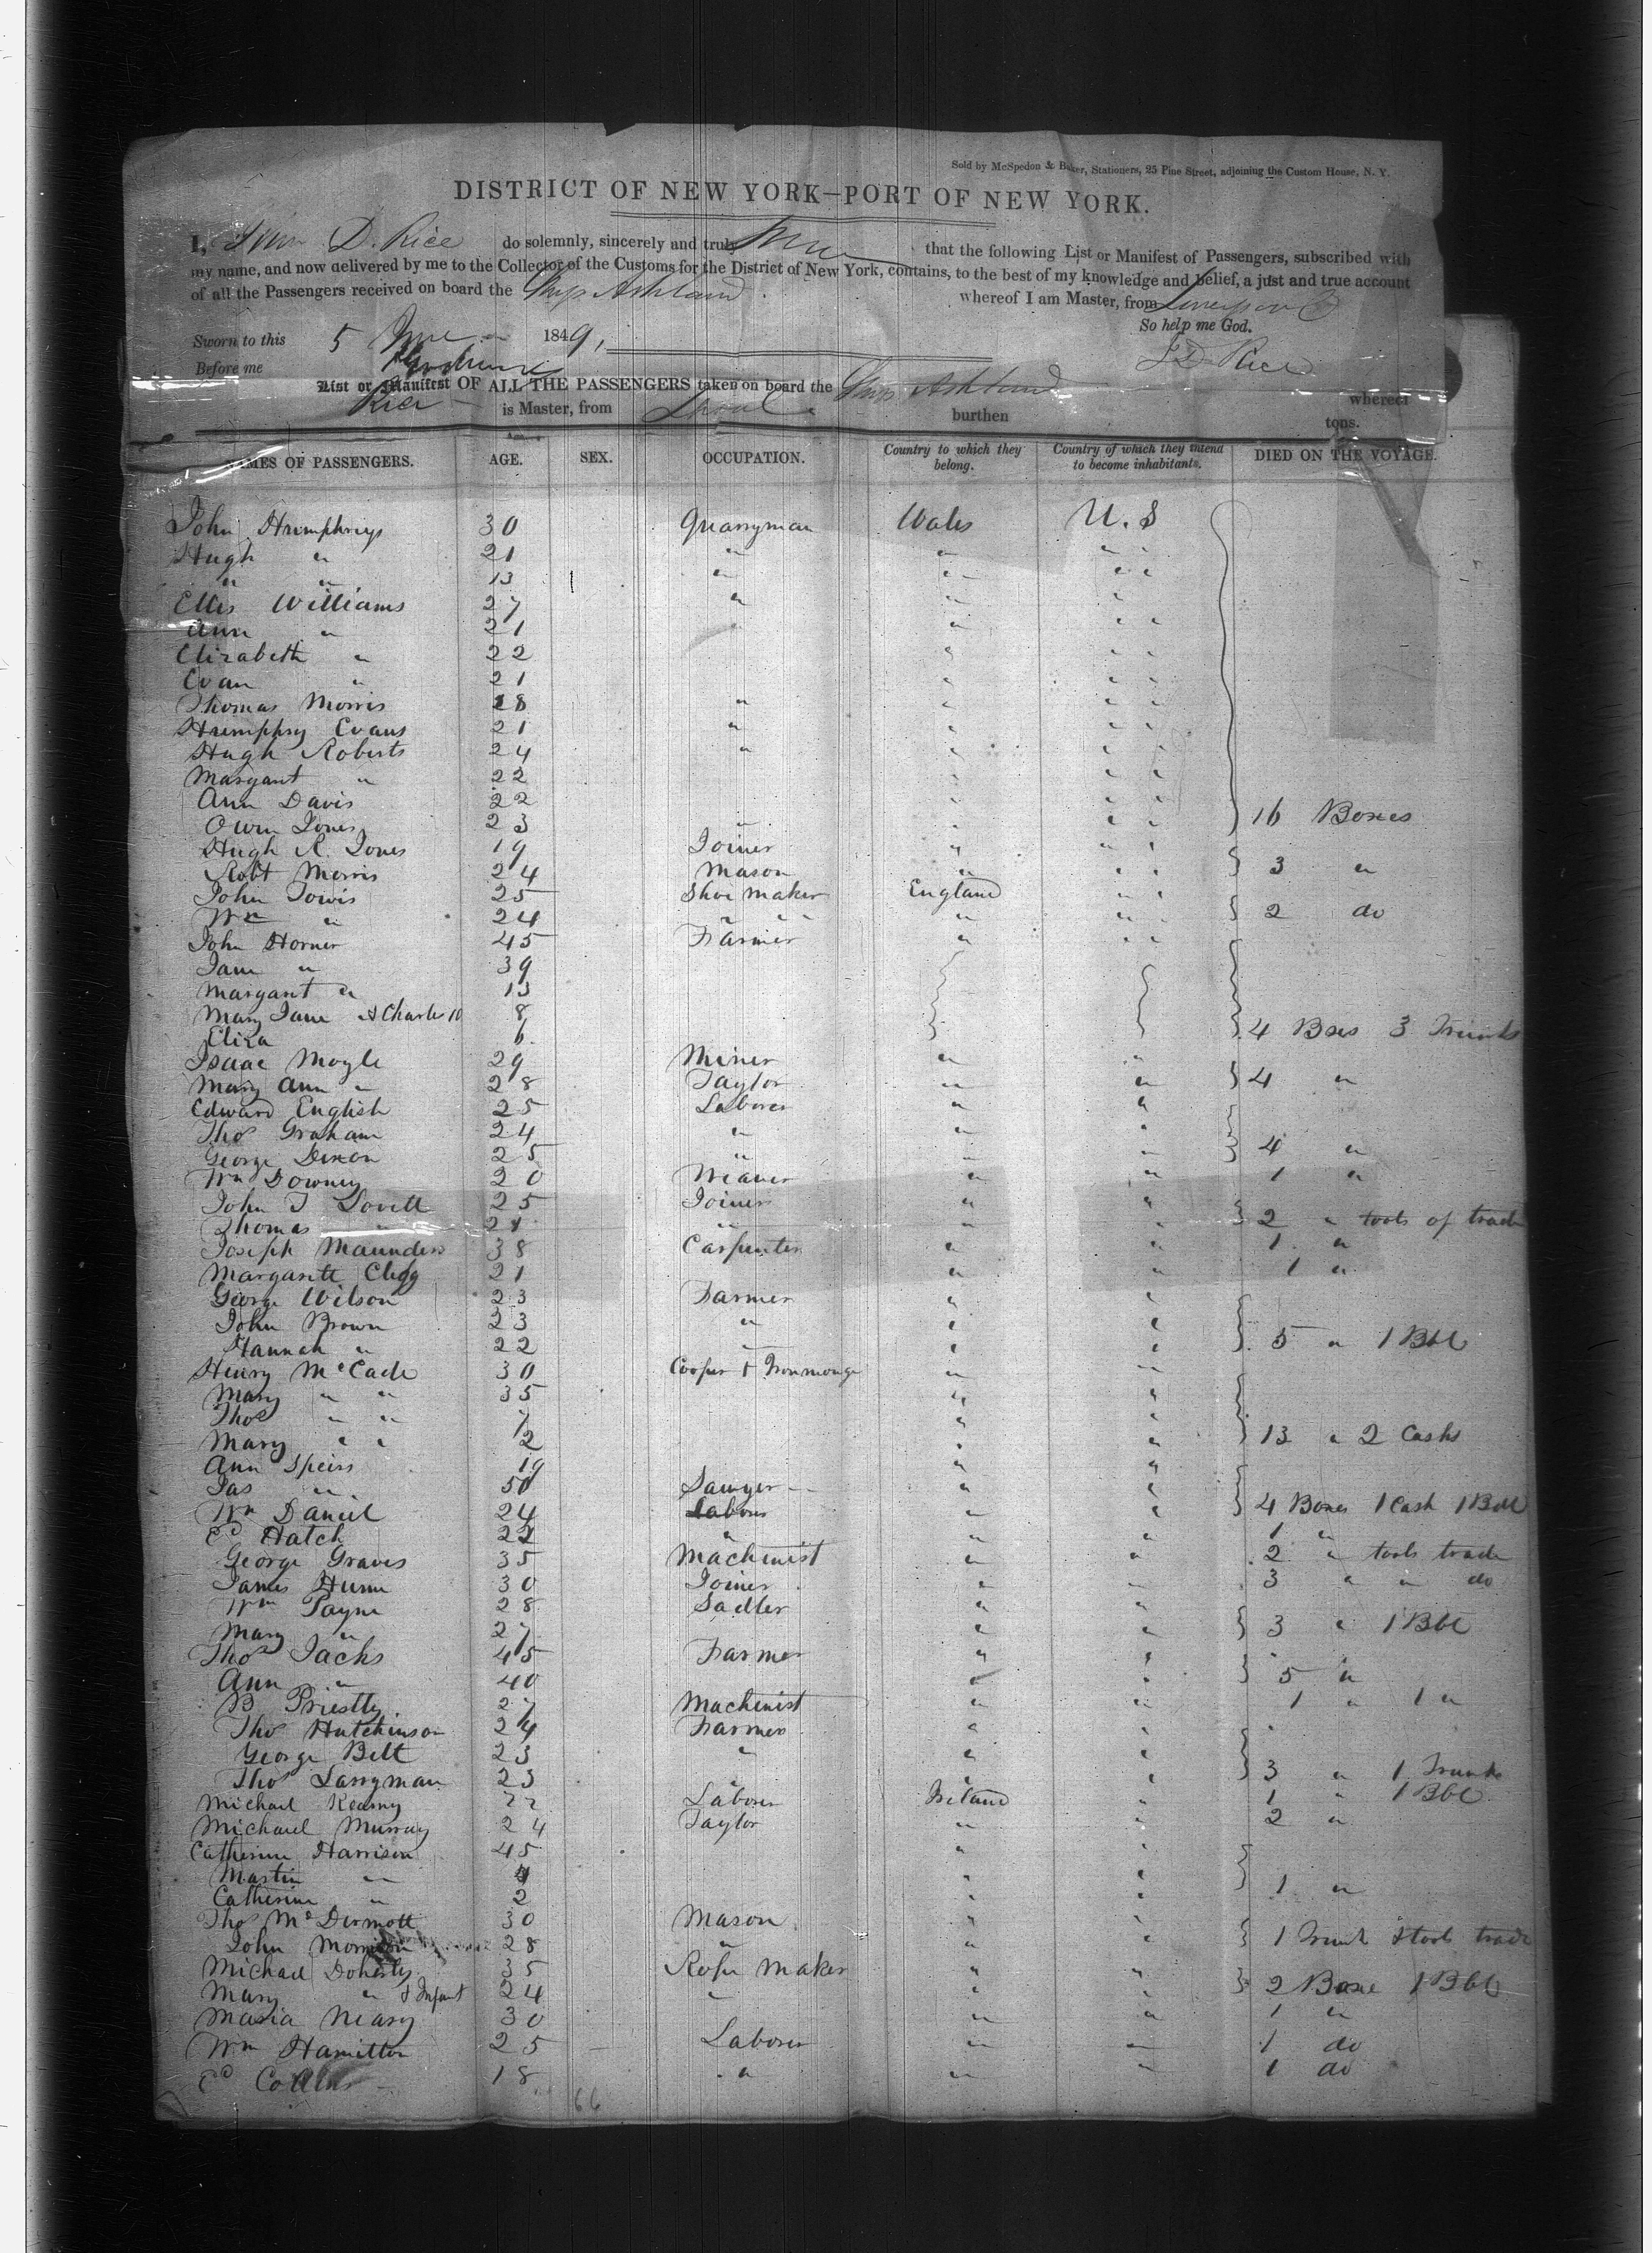 Sold by McSpedon & Baker, Stationers, 25 Pine Street, adjoining the Custom House, N. Y.
DISTRICT OF NEW YORK—PORT OF NEW YORK.
I, D. Rice do solemnly, sincerely and truly that the following List or Manifest of Passengers, subscribed with
my name, and now delivered by me to the Collector of the Customs for the District of New York, contains, to the best of my knowledge and belief, a just and true account
of all the Passengers received on board the Ship Ashland whereof I am Master, from Liverpool
So help me God.
Sworn to this 5 June 1849,
Before me J D Rice
List or Manifest OF ALL THE PASSENGERS taken on board the Ship Ashland whereof
Rice is Master, from Lpool burthen tons.
NAMES OF PASSENGERS. AGE. SEX. OCCUPATION. Country to which they belong. Country of which they intend to become inhabitants. DIED ON THE VOYAGE.
John Humphreys 30 Quarryman Wales U.S
Hugh " 21 " " " "
" " 13 " " " "
Ellis Williams 27 " " "
Ann " 21 " " " "
Elizabeth " 22 " " "
Evan " 21 " " "
Thomas Morris 28 " " " "
Humphry Evans 21 " " " "
Hugh Roberts 24 " " " "
Margaret " 22 " " "
Ann Davis 22 " " "
Owen Jones 23 " " " " 16 Boxes
Hugh R. Jones 19 Joiner " " "
Robt Morris 24 Mason " " " 3 "
John Towis 25 Shoe Maker England " "
Wm " 24 " " " " " 2 do
John Horner 45 Farmer " " "
Jane " 39
Margaret " 13
Mary Jane & Charles 10 8
Eliza 6 4 Boxes 3 Trunks
Isaac Moyle 29 Miner " "
Mary Ann " 28 Taylor " " 4 "
Edward English 25 Laborer " "
Thos Graham 24 " " "
George Dixon 25 " " " 4 "
Wm Downey 20 Weaver " " 1 "
John T Lovett 25 Joiners " "
Thomas " 21 " " " 2 " tools of trade
Joseph Maunders 38 Carpenter " " 1 "
Margarett Clegg 21 " " 1 "
George Wilson 23 Farmer " "
John Brown 23 " " "
Hannah " 22 " " " 5 " 1 Bbl
Henry McCade 30 Cooper & Ironmonger " "
Mary " " 35 " "
Thos " " 7 " "
Mary " " 2 " " 13 " 2 Casks
Ann Speirs 19 " "
Jas " 50 Sawyer " "
Wm Daniel 24 Laborer " " 4 Boxes 1 Cask 1 Bbl
Ed Hatch 22 " " " 1 "
George Graves 35 Machinist " " 2 " tools trade
James Hume 30 Joiner " " 3 " " do
Wm Payne 28 Sadler " "
Mary " 27 " " 3 " 1 Bbl
Thos Jacks 45 Farmer " "
Ann " 40 " " 5 "
B Priestly 27 Machinist " " 1 " 1 "
Thos Hutchinson 24 Farmer " "
George Belt 23 " " "
Thos Larryman 23 " " " 3 " 1 Trunk
Michael Kearny 22 Laborer Ireland " 1 " 1 Bbl
Michael Murray 24 Taylor " " 2 "
Catherine Harrison 45 " "
Martin " 4 " "
Catherine " 2 " " 1 "
Thos McDermott 30 Mason " "
John Morrison 28 " " " 1 Trunk & tools trade
Michael Doherty 35 Rope Maker " "
Mary " & Infant 24 " " " 2 Boxe 1 Bbl
Maria Neary 30 " " 1 "
Wm Hamilton 25 Laborer " " 1 do
Ed Collins 18 " " " 1 do
66